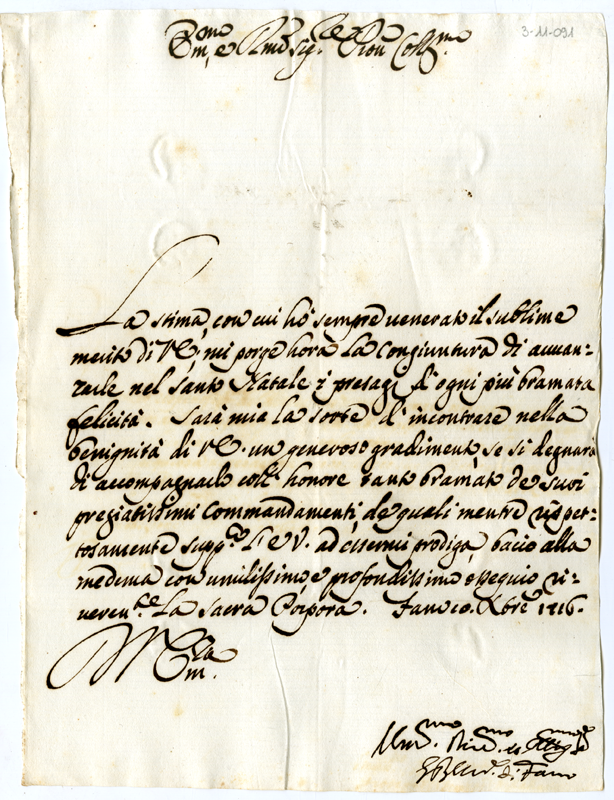 3-11-091
Em.mo e Rmo Sig.re Pron Coll.mo
La stima, con cui hò sempre venerato il sublime
merito di VE, mi porge hora la congiuntura di auuan-
zarle nel Santo Natale i presagi d'ogni più bramata
felicità. Sarà mia la sorte d'incontrare nella
benignità di VE. un generoso gradimento, se si degnarà
di accompagnarlo coll' honore tanto bramato de suoi
pregiatissimi commandamenti, de quali mentre rispet-
tosamente supp.co l'E.V. ad essermi prodiga, bacio alla
medema con umilissimo, e profondissimo ossequio ri-
ueren.te la Sacra Porpora. Fano 10. Xbre 1716.
Di V. Em.za
Um.mo Diu.mo
di Fano